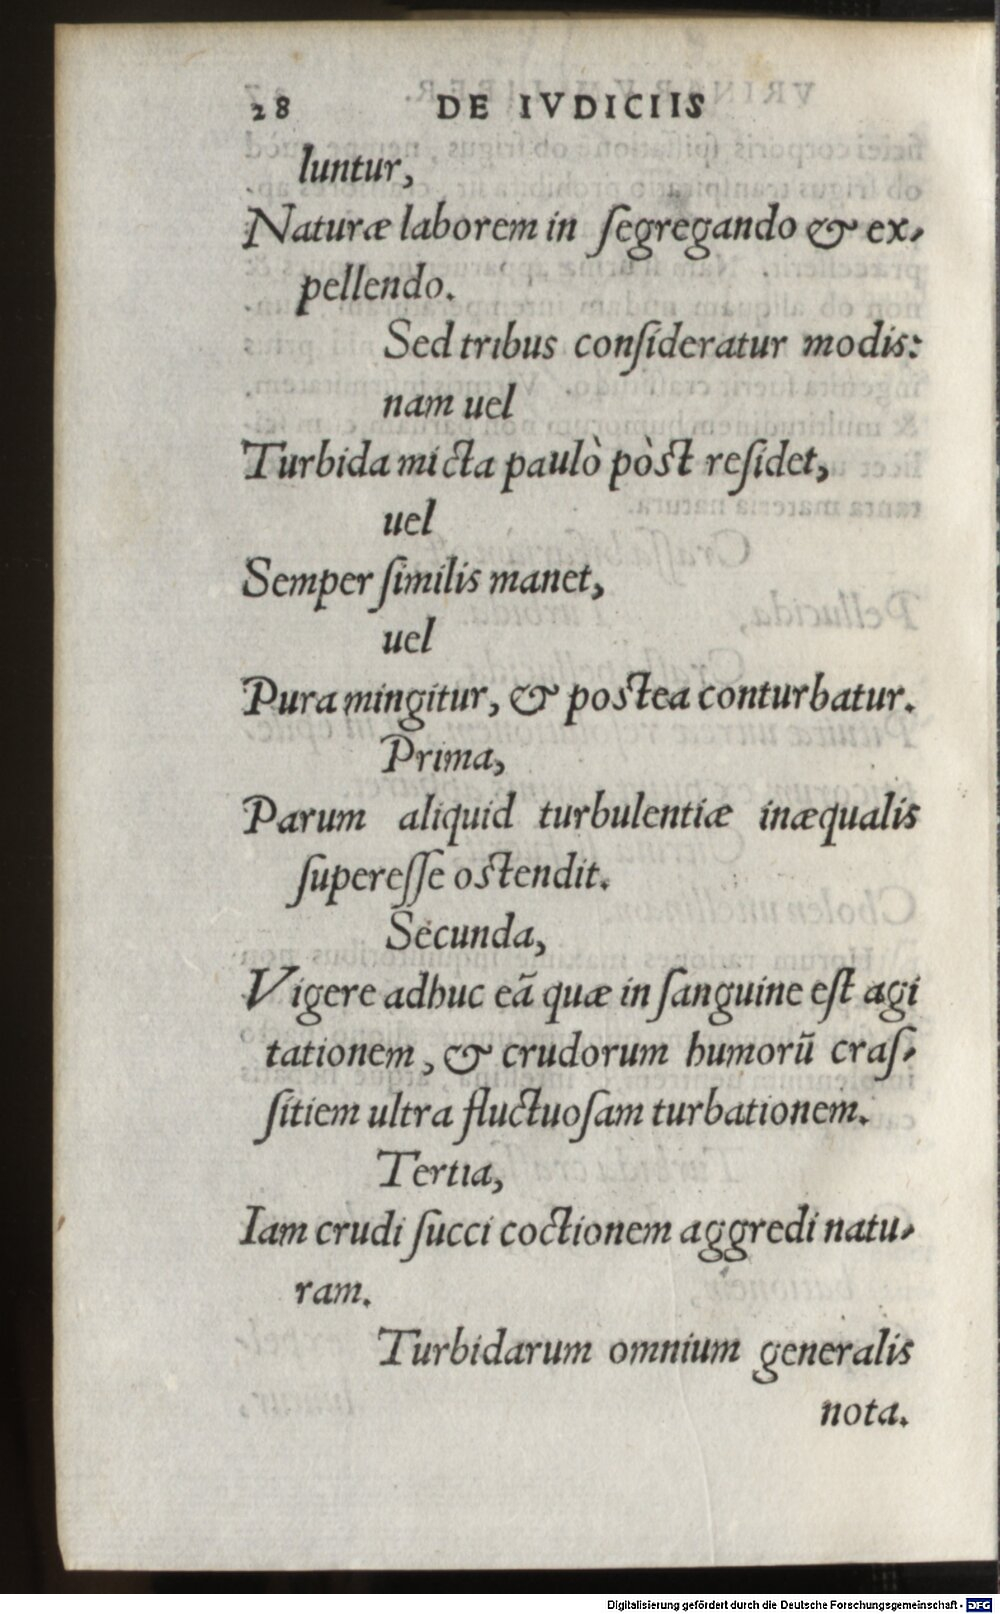 28 DE IVDICIIS
luntur,
Naturæ laborem in ſegregando & ex-
pellendo.
Sed tribus conſideratur modis:
nam uel
Turbida micta paulò pòst reſidet,
uel
Semper ſimilis manet,
uel
Pura mingitur, & postea conturbatur.
Prima,
Parum aliquid turbulentiæ inæqualis
ſupereſſe ostendit.
Secunda,
Vigere adhuc eã quæ in ſanguine eſt agi
tationem, & crudorum humorũ craſ-
ſitiem ultra fluctuoſam turbationem.
Tertia,
Iam crudi ſucci coctionem aggredi natu-
ram.
Turbidarum omnium generalis
nota.
Digitalisierung gefördert durch die Deutsche Forschungsgemeinschaft - DFG